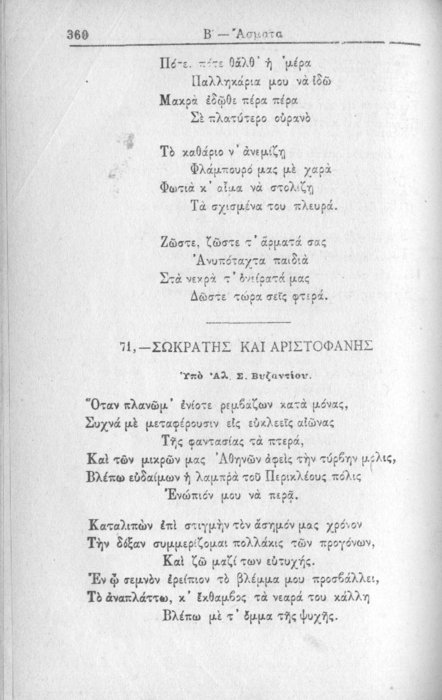 360
Β´ — Ἄσματα
Πότε. πότε θἄλθ᾽ ἡ ᾽μέρα
Παλληκάρια μου νὰ ἰδῶ
Μακρὰ ἐδῶθε πέρα πέρα
Σὲ πλατύτερο οὐρανὸ
Τὸ καθάριο ν᾽ ἀνεμίζῃ
Φλάμπουρό μας μὲ χαρὰ
Φωτιὰ κ᾽ αἷμα νὰ στολίζῃ
Τὰ σχισμένα του πλευρά.
Ζῶστε, ζῶστε τ᾽ ἄρματά σας
Ἀνυπόταχτα παιδιὰ
Στὰ νεκρὰ τ᾽ ὀνείρατά μας
Δῶστε τώρα σεῖς φτερά.
71,—ΣΩΚΡΑΤΗΣ ΚΑΙ ΑΡΙΣΤΟΦΑΝΗΣ
Ὑπὸ Ἀλ. Σ. Βυζαντίου.
Ὅταν πλανῶμ᾽ ἐνίοτε ρεμβάζων κατὰ μόνας,
Συχνά μὲ μεταφέρουσιν εἰς εὐκλεεῖς αἰῶνας
Τῆς φαντασίας τὰ πτερά,
Καὶ τῶν μικρῶν μας Ἀθηνῶν ἀφεὶς τὴν τύρβην μόλις,
Βλέπω εὐδαίμων ἡ λαμπρὰ τοῦ Περικλέους πόλις
Ἐνώπιόν μου νὰ περᾷ.
Καταλιπὼν ἐπὶ στιγμὴν τὸν ἄσημόν μας χρόνον
Τὴν δόξαν συμμερίζομαι πολλάκις τῶν προγόνων,
Καὶ ζῶ μαζί των εὐτυχής.
Ἐν ᾧ σεμνὸν ἐρείπιον τὸ βλέμμα μου προσβάλλει,
Τὸ ἀναπλάττω, κ᾽ ἔκθαμβος τὰ νεαρά του κάλλη
Βλέπω μὲ τ᾽ ὄμμα τῆς ψυχῆς.